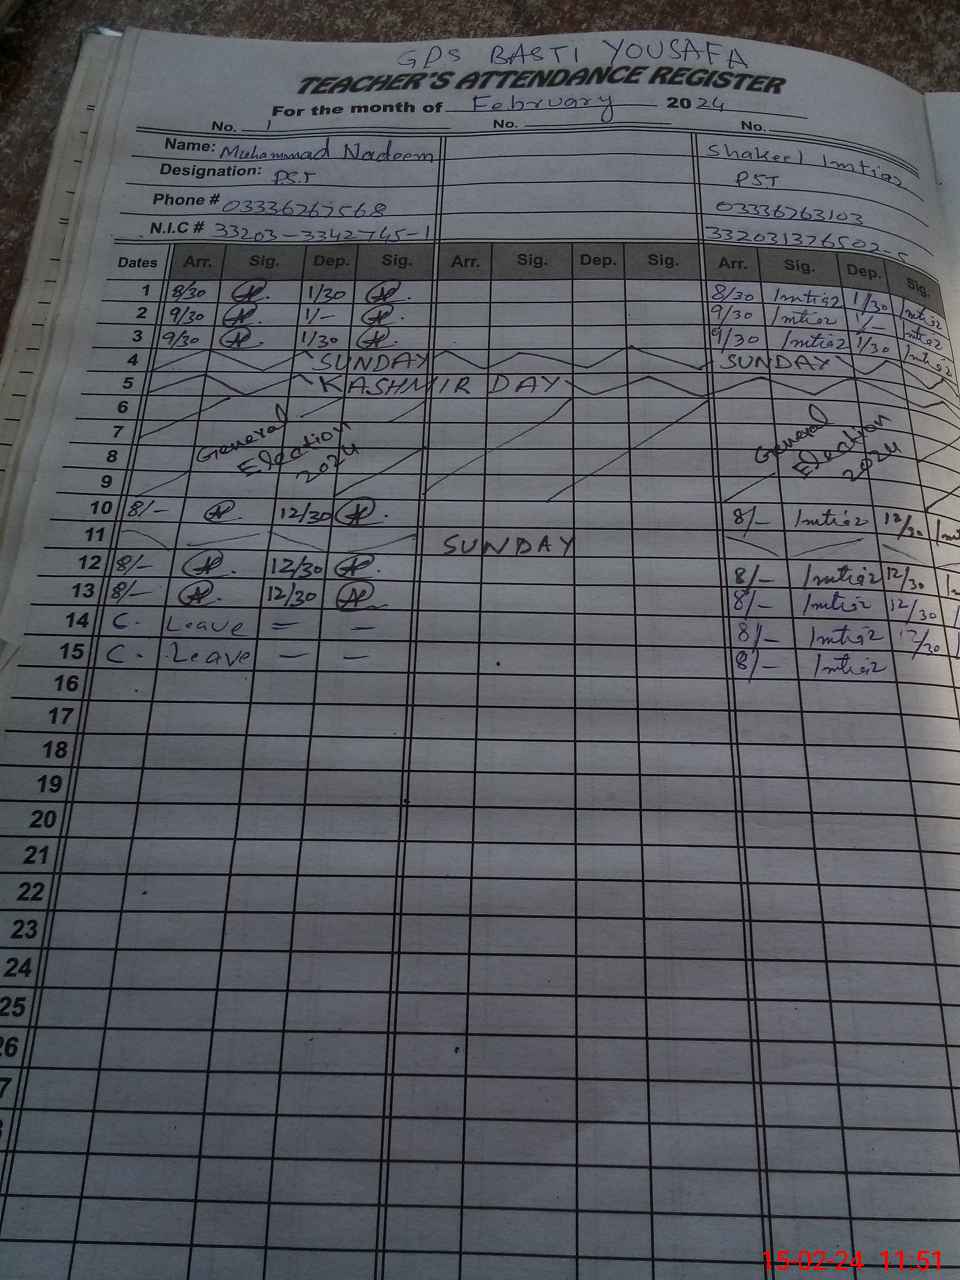 GPS BASTI YOUSAFA
TEACHER'S ATTENDANCE REGISTER
For the month of February 2024
No. 1 No. No.
Name: Muhammad Nadeem Shakeel Imtiaz
Designation: P.S.T PST
Phone # 03336767568 03336763103
N.I.C # 33203-3342745-1 332031376502-5
Dates Arr. Sig. Dep. Sig. Arr. Sig. Dep. Sig. Arr. Sig. Dep. Sig.
1 8/30 1/30 8/30 Imtiaz 1/30 Imtiaz
2 9/30 1/- 9/30 Imtiaz 1/- Imtiaz
3 9/30 1/30 9/30 Imtiaz 1/30 Imtiaz
4 SUNDAY SUNDAY
5 KASHMIR DAY
6
7 General General
8 Election Election
9 2024 2024
10 8/- 12/30 8/- Imtiaz 12/30
11 SUNDAY
12 8/- 12/30 8/- Imtiaz 12/30
13 8/- 12/30 8/- Imtiaz 12/30
14 C. Leave = - 8/- Imtiaz 12/30
15 C. Leave - - 8/- Imtiaz
16
17
18
19
20
21
22
23
24
25
26
7
15-02-24 11:51